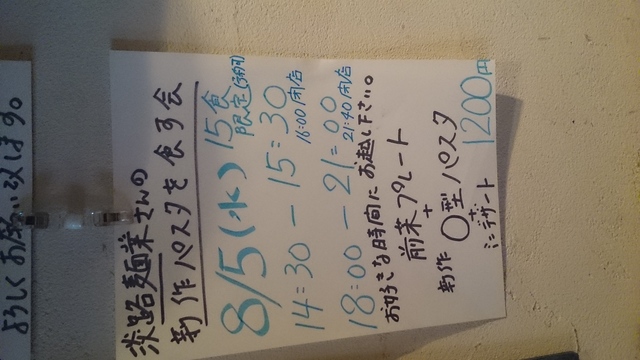 よろしくお願い致します。
淡路麺業さんの
新作パスタを食す会
8/5(水) 15食
限定(予約可)
14:30 - 15:30
16:00 閉店
18:00 - 21:00
21:40 閉店
お好きな時間にお越し下さい。
前菜プレート
+
新作 〇型パスタ
+
ミニデザート
1200円